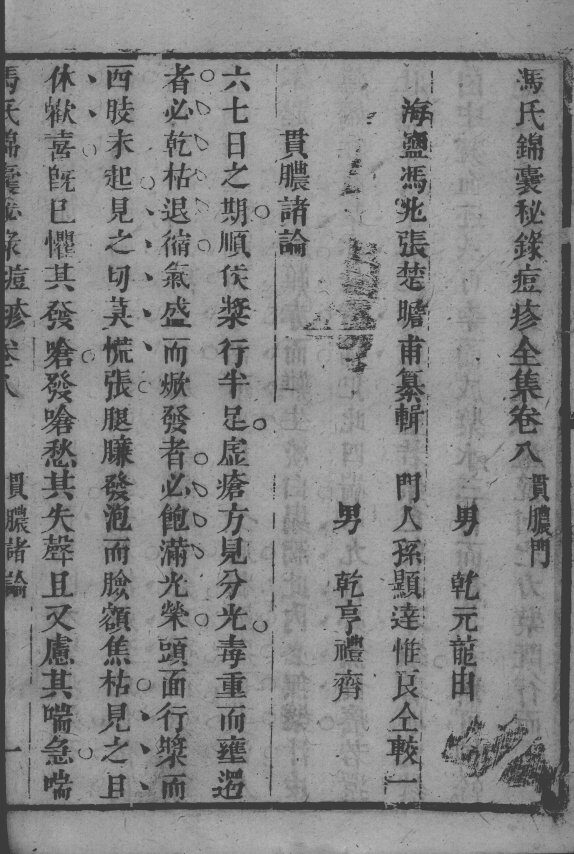 馮氏錦囊秘錄痘疹全集卷八 貫膿門
男 乾元龍田
海鹽馮兆張楚瞻甫纂輯 門人孫顯達惟良仝較
男 乾亨禮齊
貫膿諸論
六七日之期順候漿行半足虛瘡方見分光毒重而壅遏
者必乾枯退㣲氣盛而焮發者必飽滿光榮頭面行漿而
四肢未起見之切莫慌張腿臁發泡而臉額焦枯見之且
休歡喜旣巳懼其發嗆發嗆愁其失聲且又慮其喘急喘
馮氏錦囊秘錄痘疹卷八 貫膿諸論 一